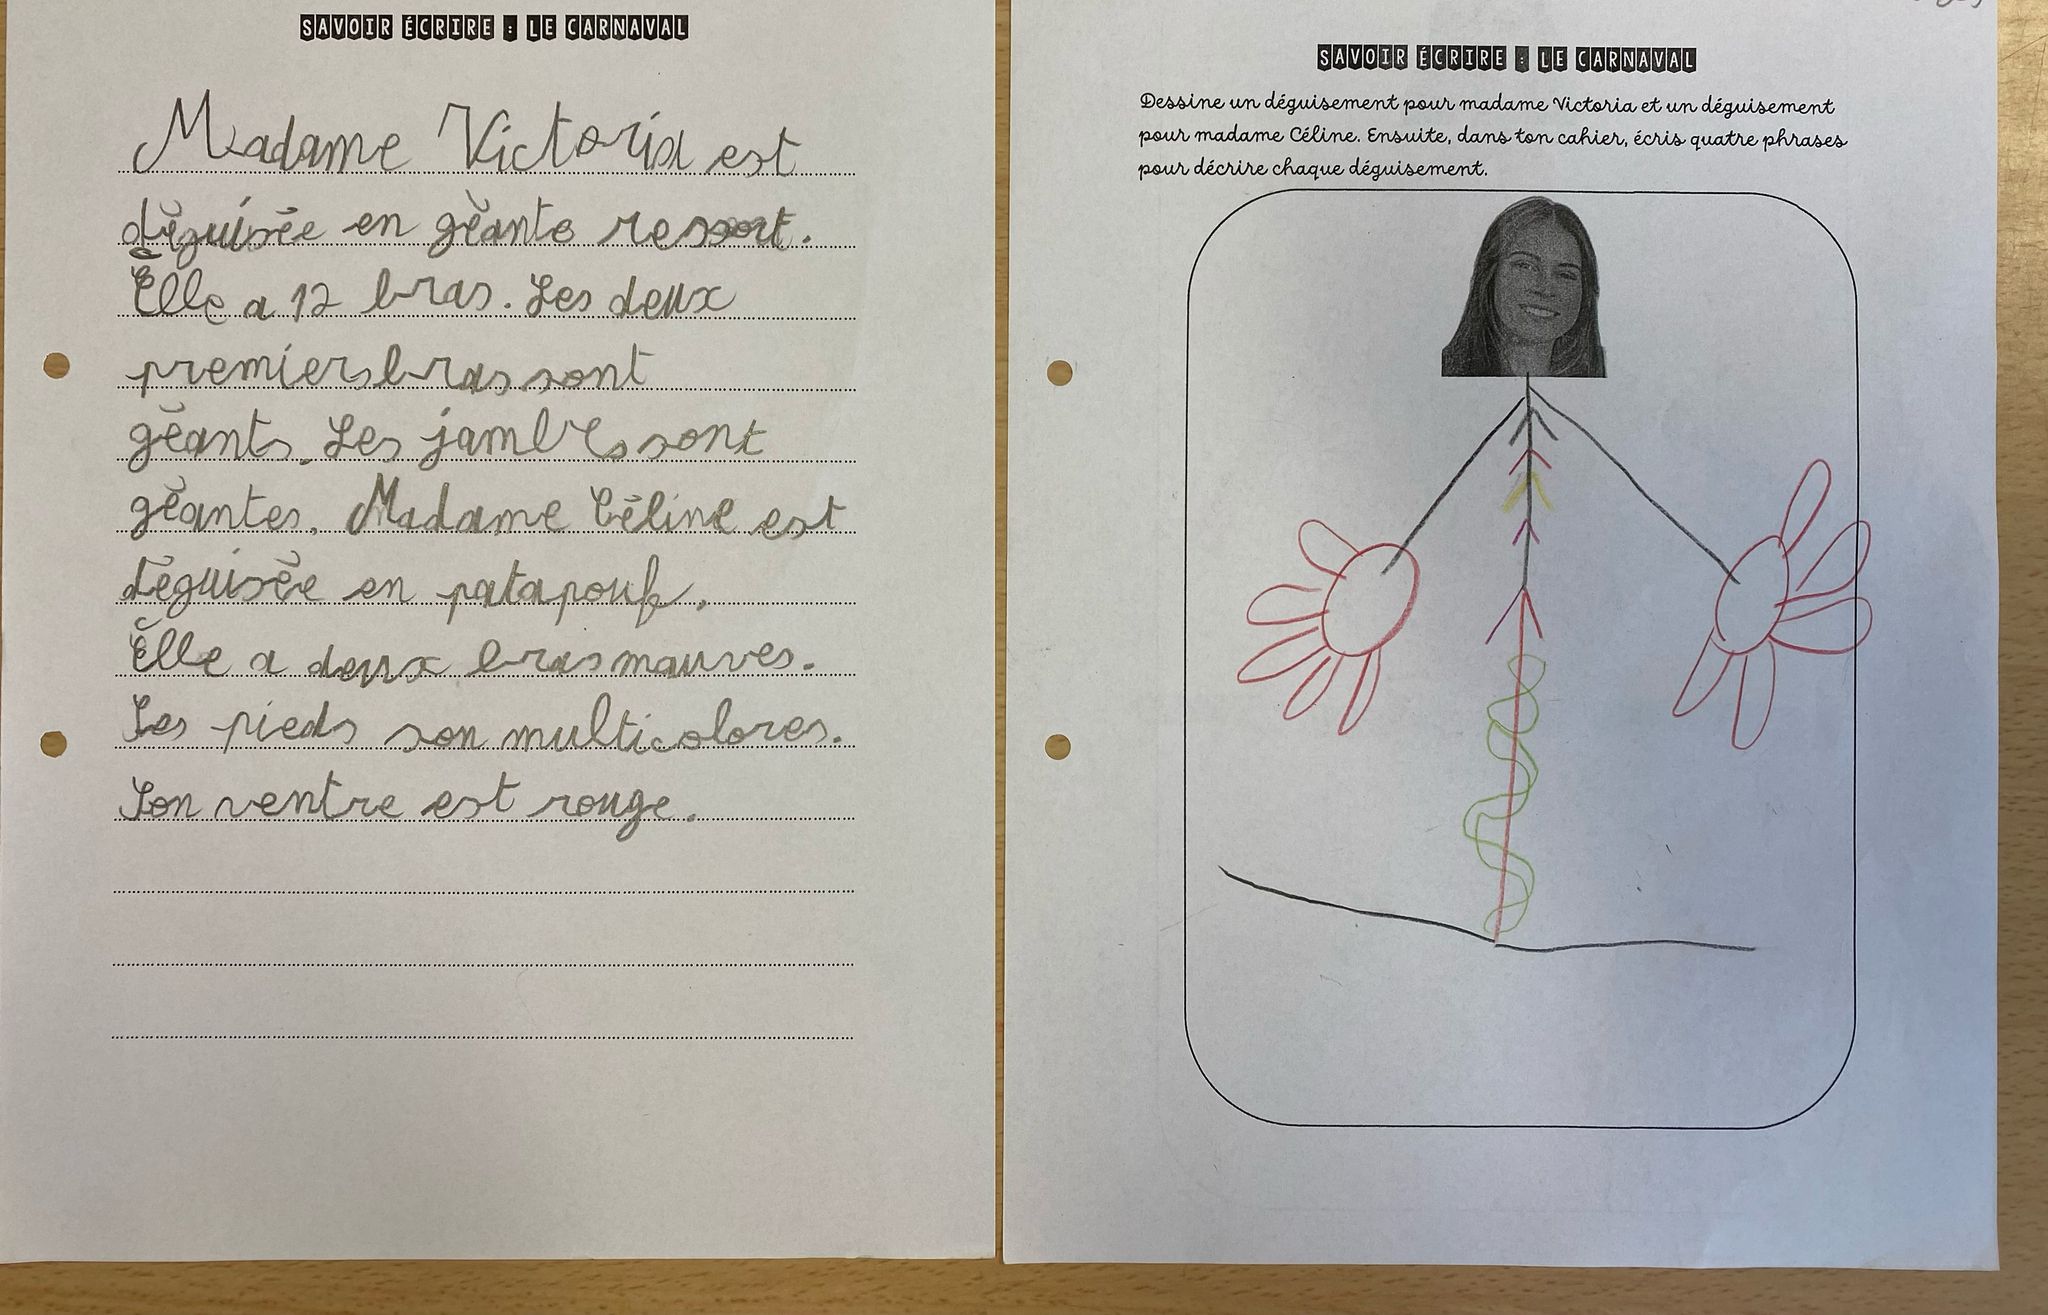 SAVOIR ÉCRIRE : LE CARNAVAL
Madame Victoria est
déguisée en géante ressort.
Elle a 12 bras. Les deux
premiers bras sont
géants. Les jambes sont
géantes. Madame Céline est
déguisée en patapouf.
Elle a deux bras mauves.
Les pieds son multicolores.
Son ventre est rouge.
SAVOIR ÉCRIRE : LE CARNAVAL
Dessine un déguisement pour madame Victoria et un déguisement
pour madame Céline. Ensuite, dans ton cahier, écris quatre phrases
pour décrire chaque déguisement.